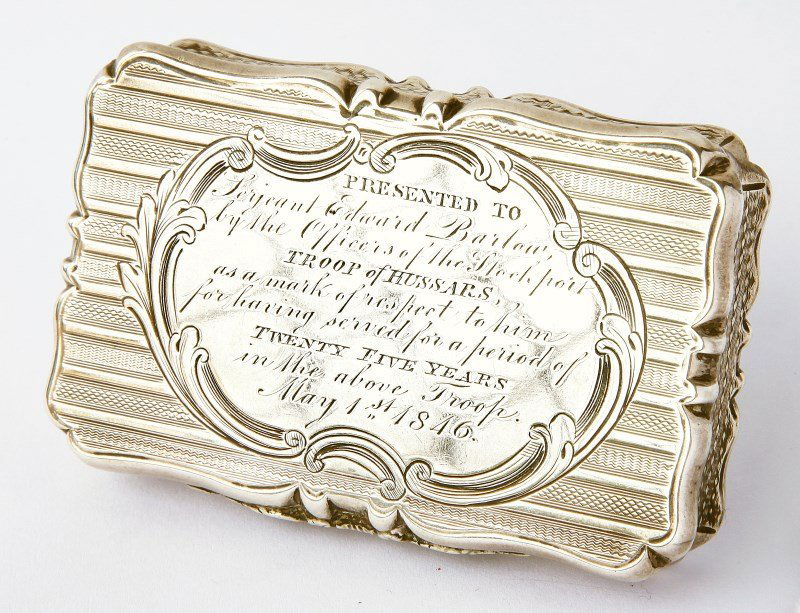 PRESENTED TO
Serjeant Edward Barlow,
by the Officers of the Stockport
TROOP of HUSSARS,
as a mark of respect to him
for having served for a period of
TWENTY FIVE YEARS
in the above Troop.
May 1st. 1846.